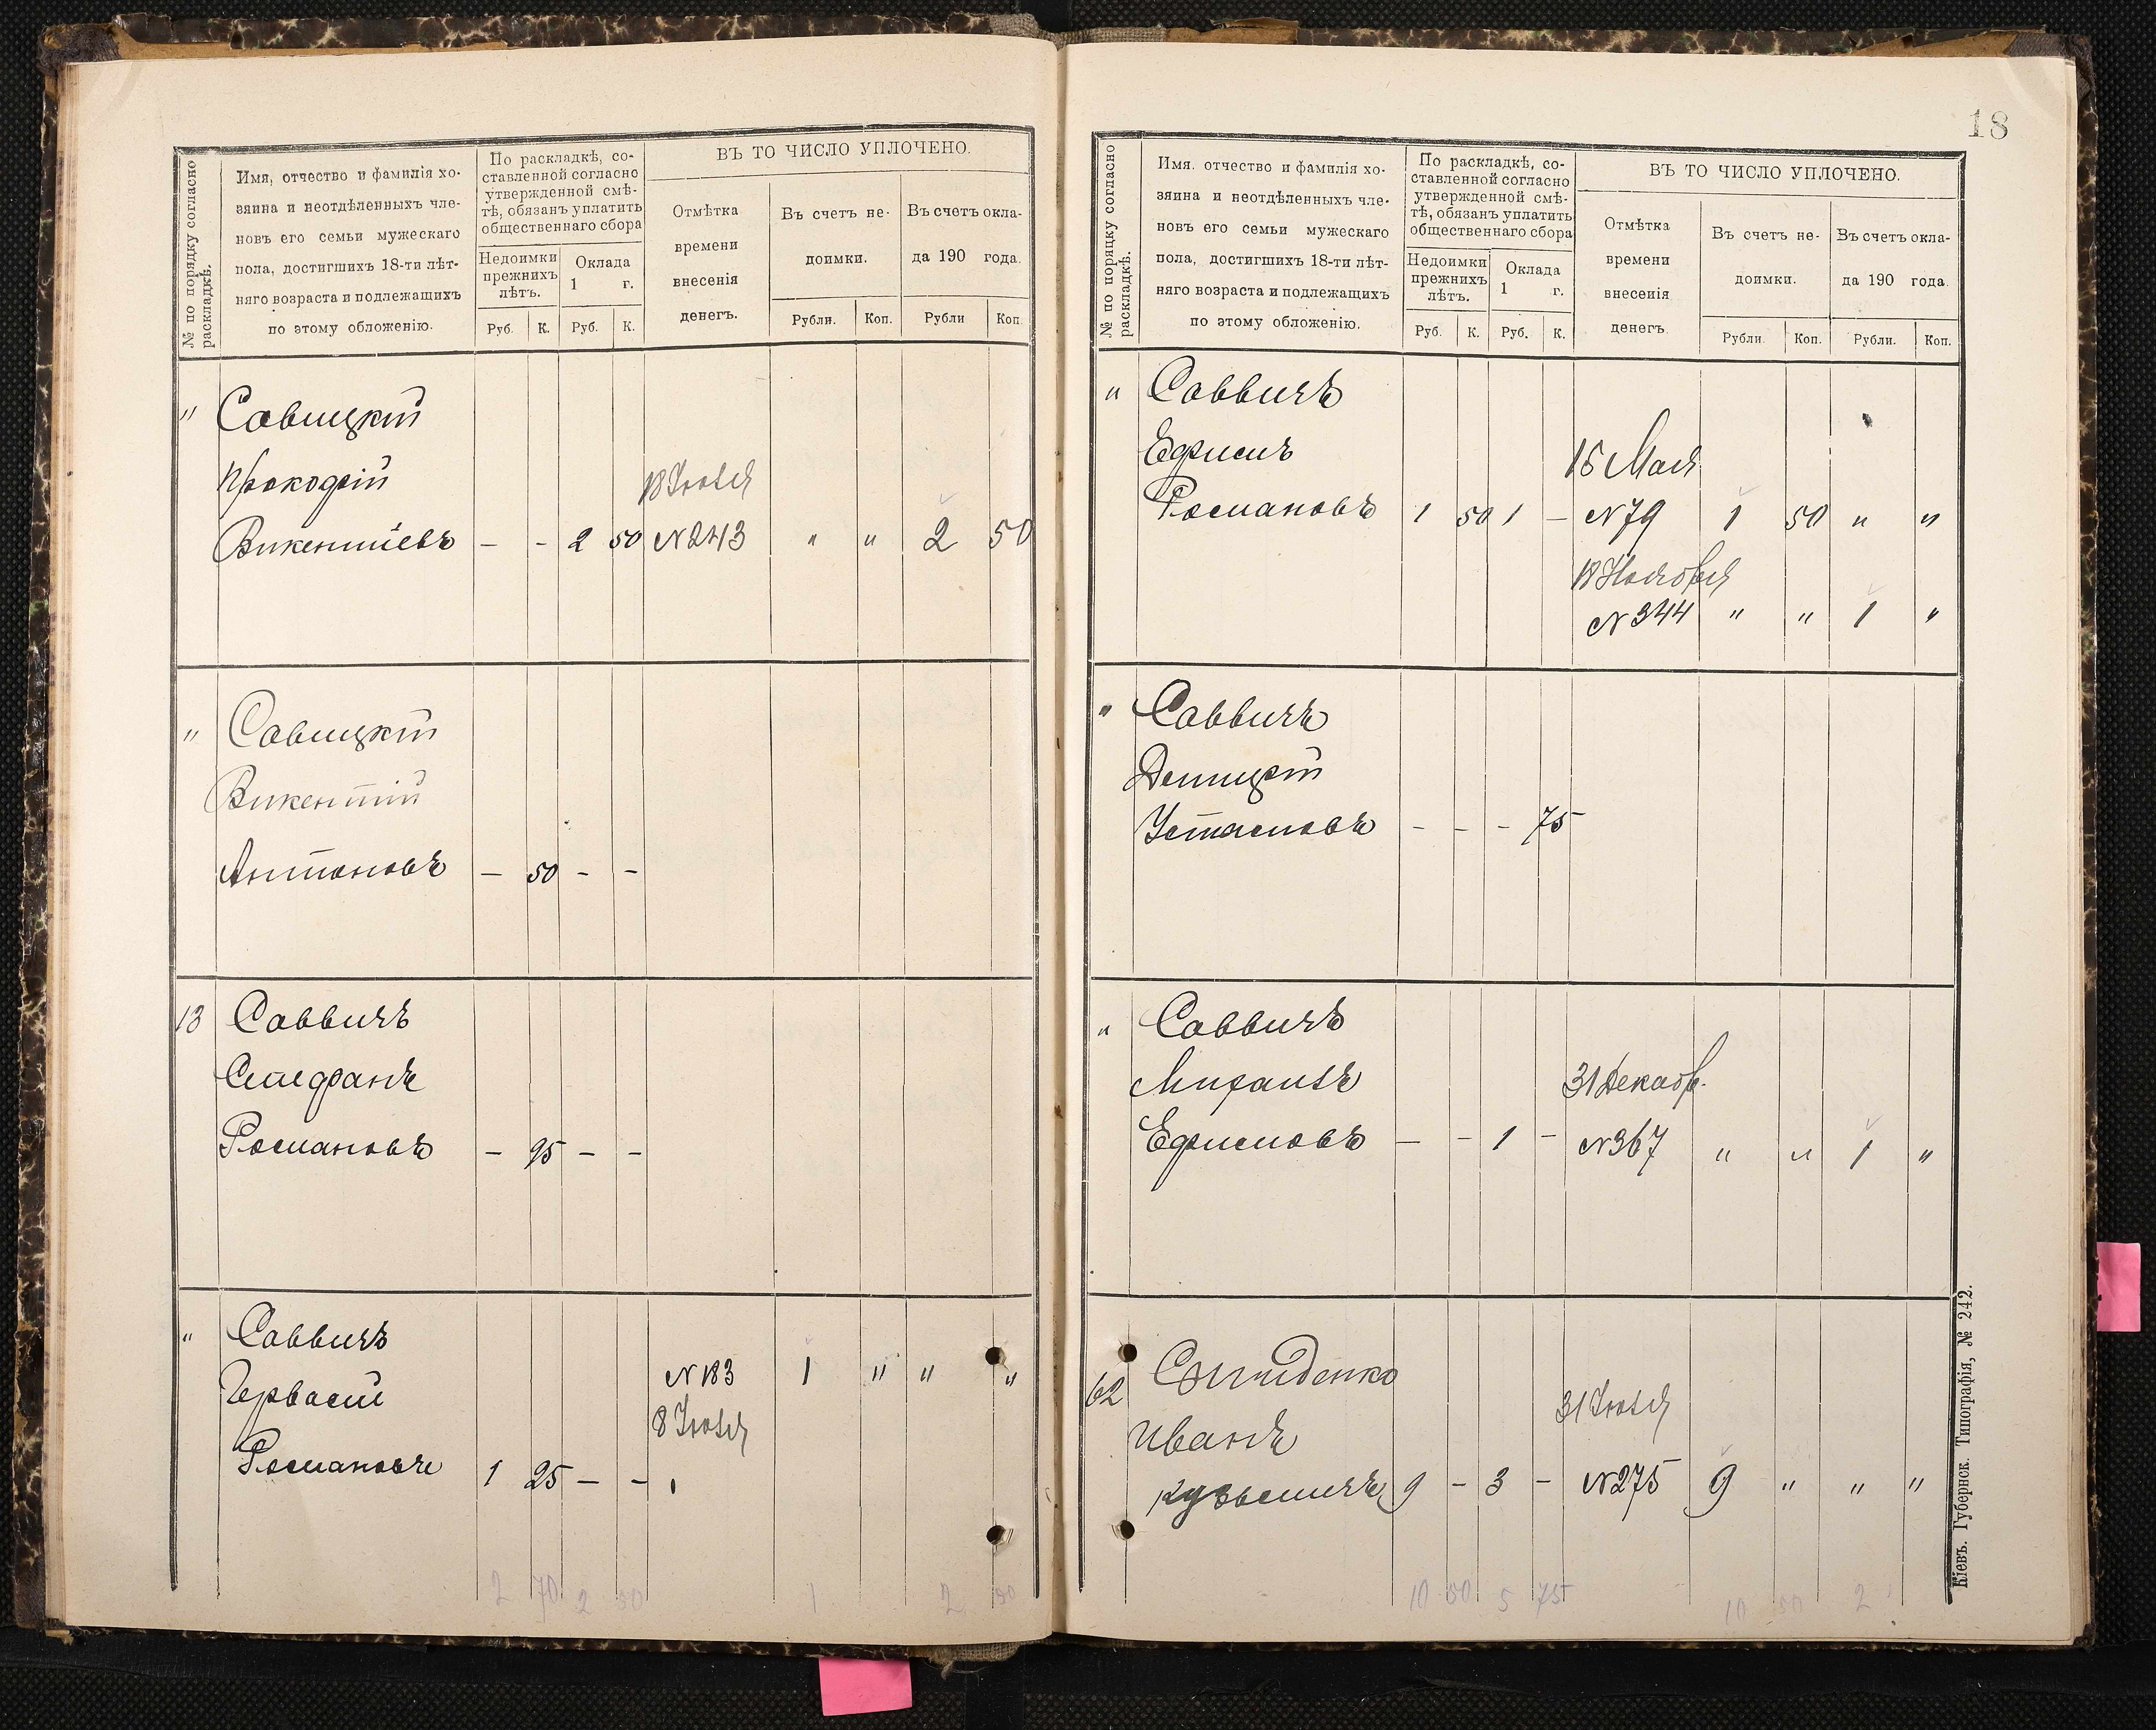 18
№ по порядку согласно раскладкѣ.
Имя, отчество и фамилія хо-
зяина и неотдѣленныхъ чле-
новъ его семьи мужескаго
пола, достигшихъ 18-ти лѣт-
няго возраста и подлежащихъ
по этому обложенію.
По раскладкѣ, со-
ставленной согласно
утвержденной смѣ-
тѣ, обязанъ уплатить
общественнаго сбора
Недоимки
прежнихъ
лѣтъ.
Оклада
1 г.
Руб. К. Руб. К.
ВЪ ТО ЧИСЛО УПЛОЧЕНО.
Отмѣтка
времени
внесенія
денегъ.
Въ счетъ не-
доимки.
Въ счетъ окла-
да 190 года.
Рубли. Коп. Рубли Коп.
" Савицкій
Прокофій 18 Іюля
Викентіевъ - - 2 50 N 243 " " 2 50
" Савицкій
Викентій
Антоновъ - 50 - -
13 Саввичъ
Стефанъ
Романовъ - 95 - -
" Саввичъ
Гервасій N 183 1 " " "
8 Іюля
Романовъ 1 25 - -
2 70 2 50 1 2 50
№ по порядку согласно раскладкѣ.
Имя. отчество и фамилія хо-
зяина и неотдѣленныхъ чле-
новъ его семьи мужескаго
пола, достигшихъ 18-ти лѣт-
няго возраста и подлежащихъ
по этому обложенію.
По раскладкѣ, со-
ставленной согласно
утвержденной смѣ-
тѣ, обязанъ уплатить
общественнаго сбора
Недоимки
прежнихъ
лѣтъ.
Оклада
1 г.
Руб. К. Руб. К.
ВЪ ТО ЧИСЛО УПЛОЧЕНО.
Отмѣтка
времени
внесенія
денегъ.
Въ счетъ не-
доимки.
Въ счетъ окла-
да 190 года.
Рубли. Коп. Рубли. Коп.
" Саввичъ
Ефимъ 15 Мая
Романовъ 1 50 1 - N 79 1 50 " "
18 Ноября
N 344 " " 1 "
" Саввичъ
Дмитрій
Устимовъ - - - 75
" Саввичъ
Михаилъ 31 Декабр.
Ефимовъ - - 1 - N 367 " " 1 "
62
Иванъ 31 Іюля
Кузьмичъ 9 - 3 - N 275 9 " " "
10 50 5 75 10 50 2
Кіевъ. Губернск. Типографія, № 242.